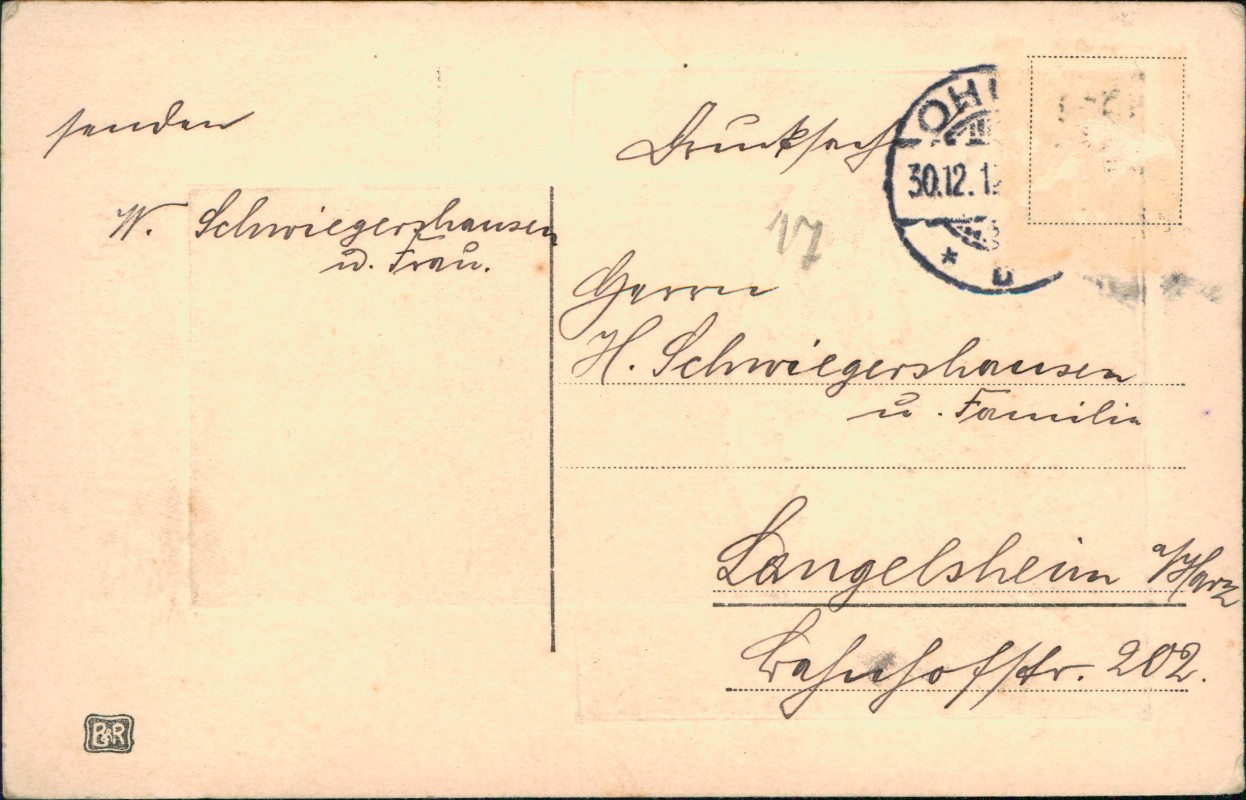 senden
W. Schwiegershausen
u. Frau.
Drucksache
30.12.1
17
Herrn
H. Schwiegershausen
u. Familie
Langelsheim a/Harz
Bahnhofstr. 202.
B&R